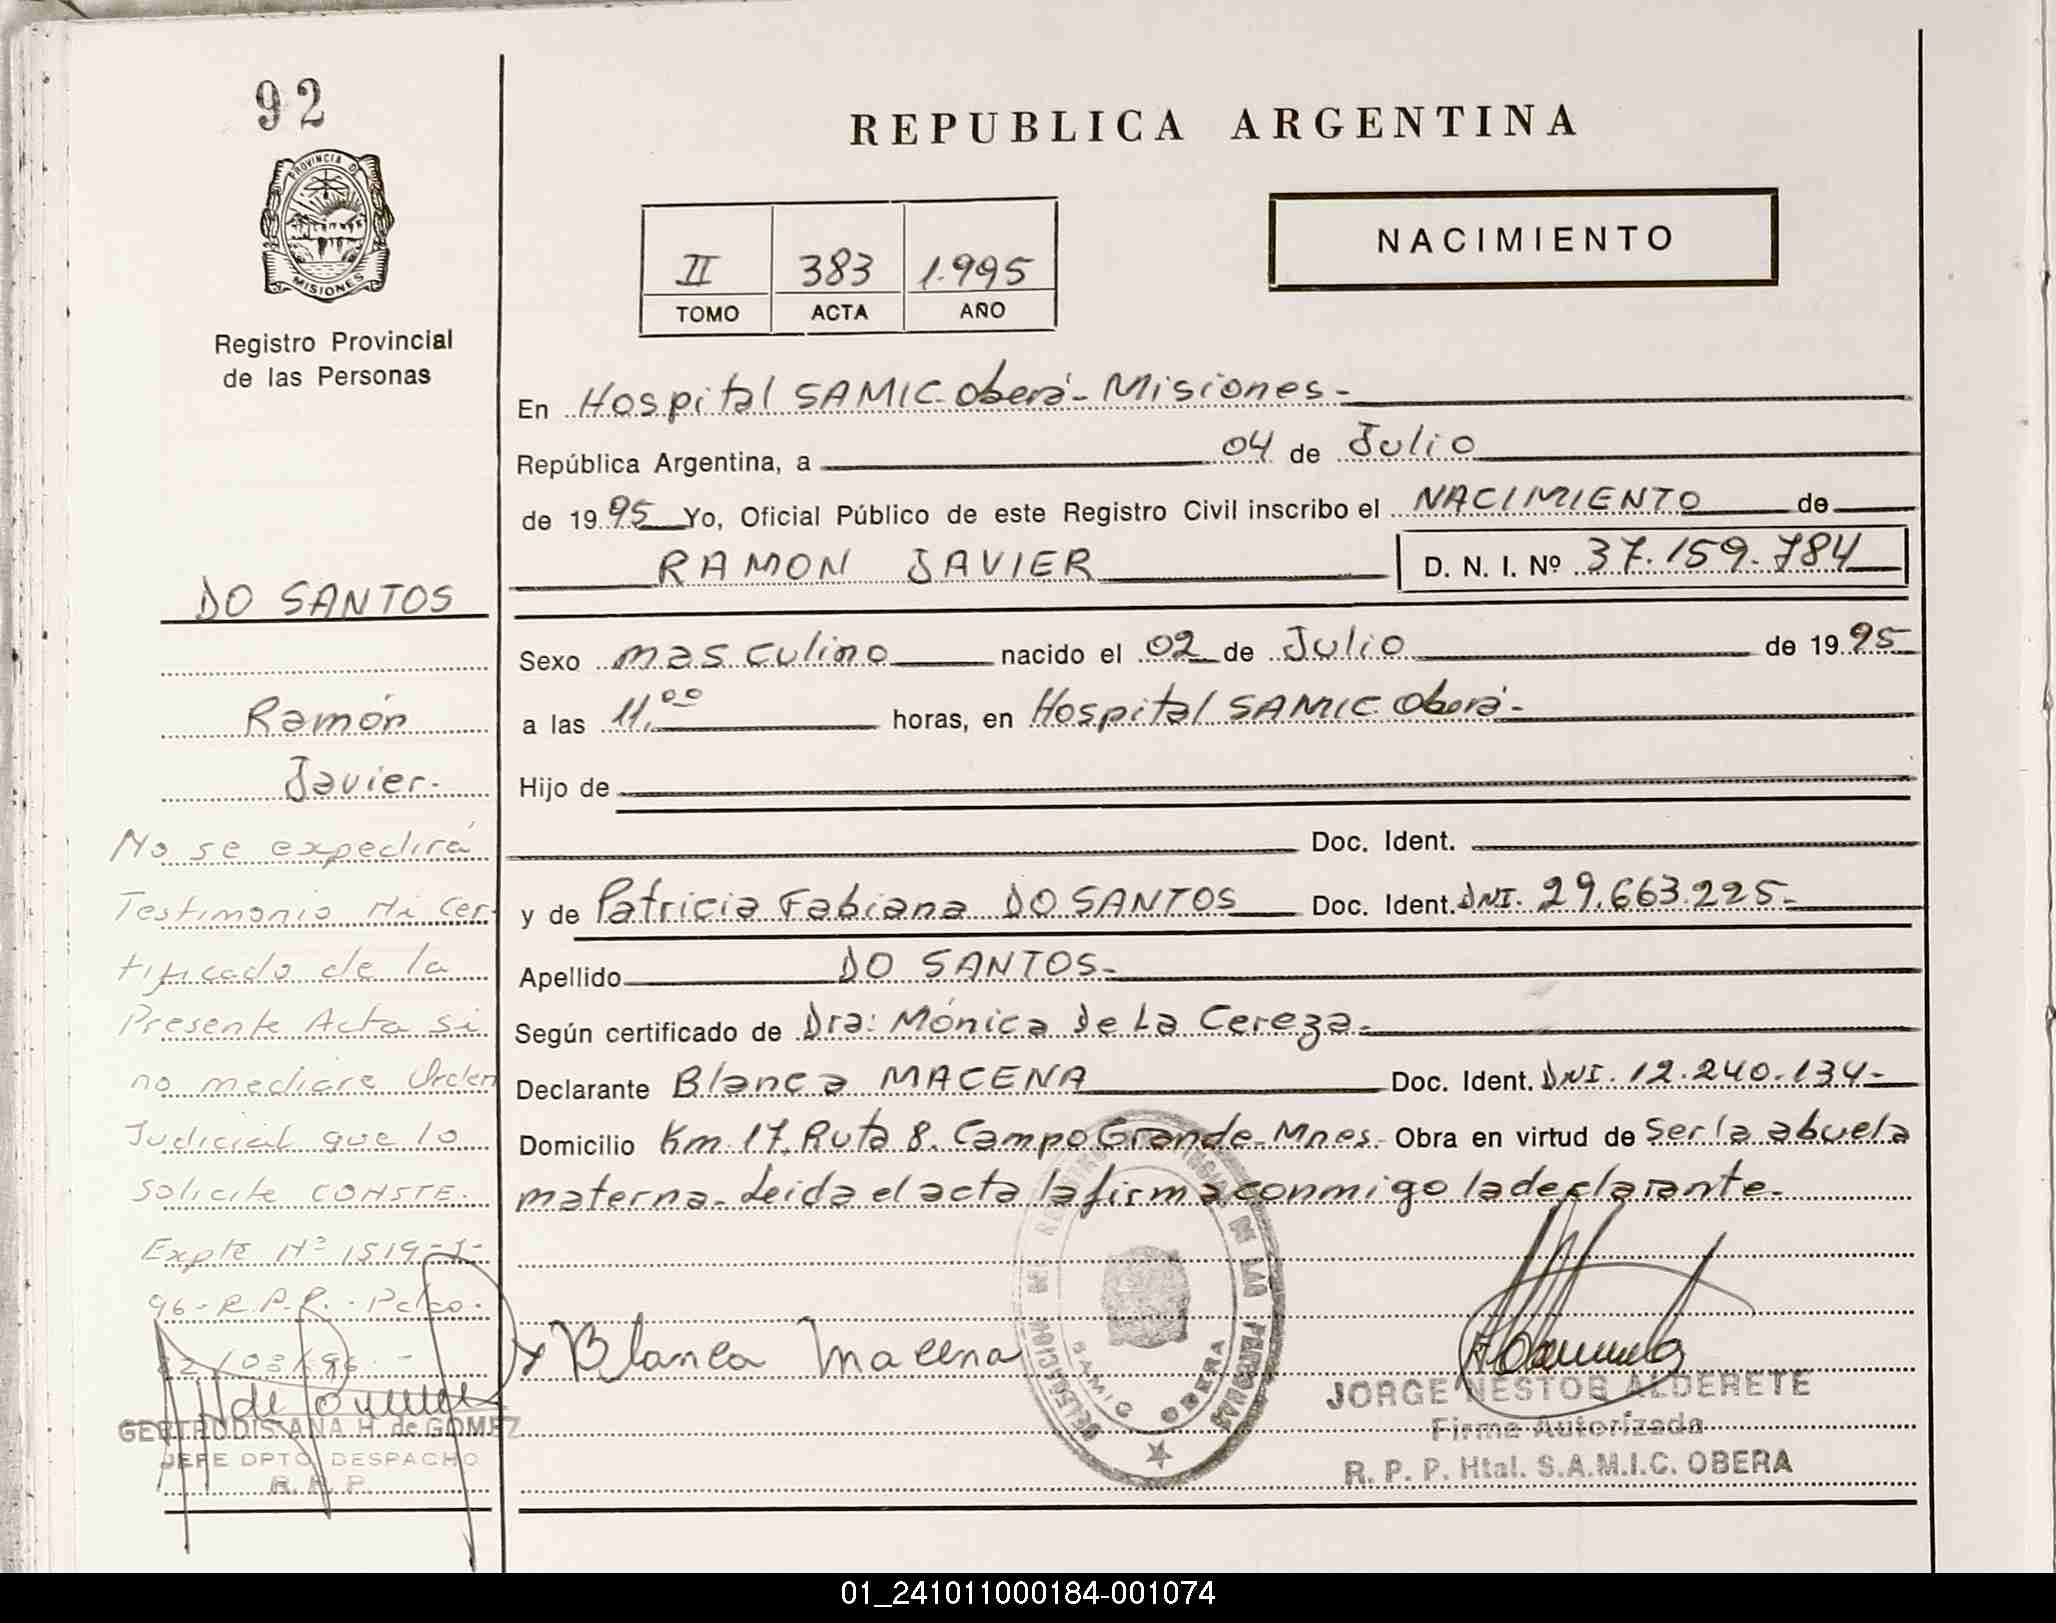 92
PROVINCIA D
MISIONES
Registro Provincial
de las Personas
REPUBLICA ARGENTINA
II 383 1.995
TOMO ACTA AÑO
NACIMIENTO
En Hospital SAMIC Oberá - Misiones -
República Argentina, a 04 de Julio
de 1995 Yo, Oficial Público de este Registro Civil inscribo el NACIMIENTO de
RAMON JAVIER D. N. I. Nº 37.159.784
Sexo masculino nacido el 02 de Julio de 1995
a las 11.00 horas, en Hospital SAMIC Oberá -
Hijo de
Doc. Ident.
y de Patricia Fabiana DO SANTOS Doc. Ident. DNI. 29.663.225-
Apellido DO SANTOS-
Según certificado de Dra: Mónica De La Cereza-
Declarante Blanca MACENA Doc. Ident. DNI. 12.240.134-
Domicilio Km. 17, Ruta 8. Campo Grande - Mnes - Obra en virtud de Ser la abuela
materna - Leida el acta la firma conmigo la declarante -
Blanca Macena
DELEGACION
DE LAS PERSONAS
SAMIC OBERA
JORGE NESTOR ALDERETE
Firma Autorizada
R. P. P. Htal. S.A.M.I.C. OBERA
DO SANTOS
Ramón
Javier-
No se expedirá
Testimonio Ni Cer-
tificado de la
Presente Acta si
no mediare Orden
Judicial que lo
Solicite CONSTE-
Expte Nº 1519-J-
96- R.P.P.-
/03/96-
GERTRUDIS ANA H. de GOMEZ
JEFE DPTO. DESPACHO
R. P. P.
01_241011000184-001074